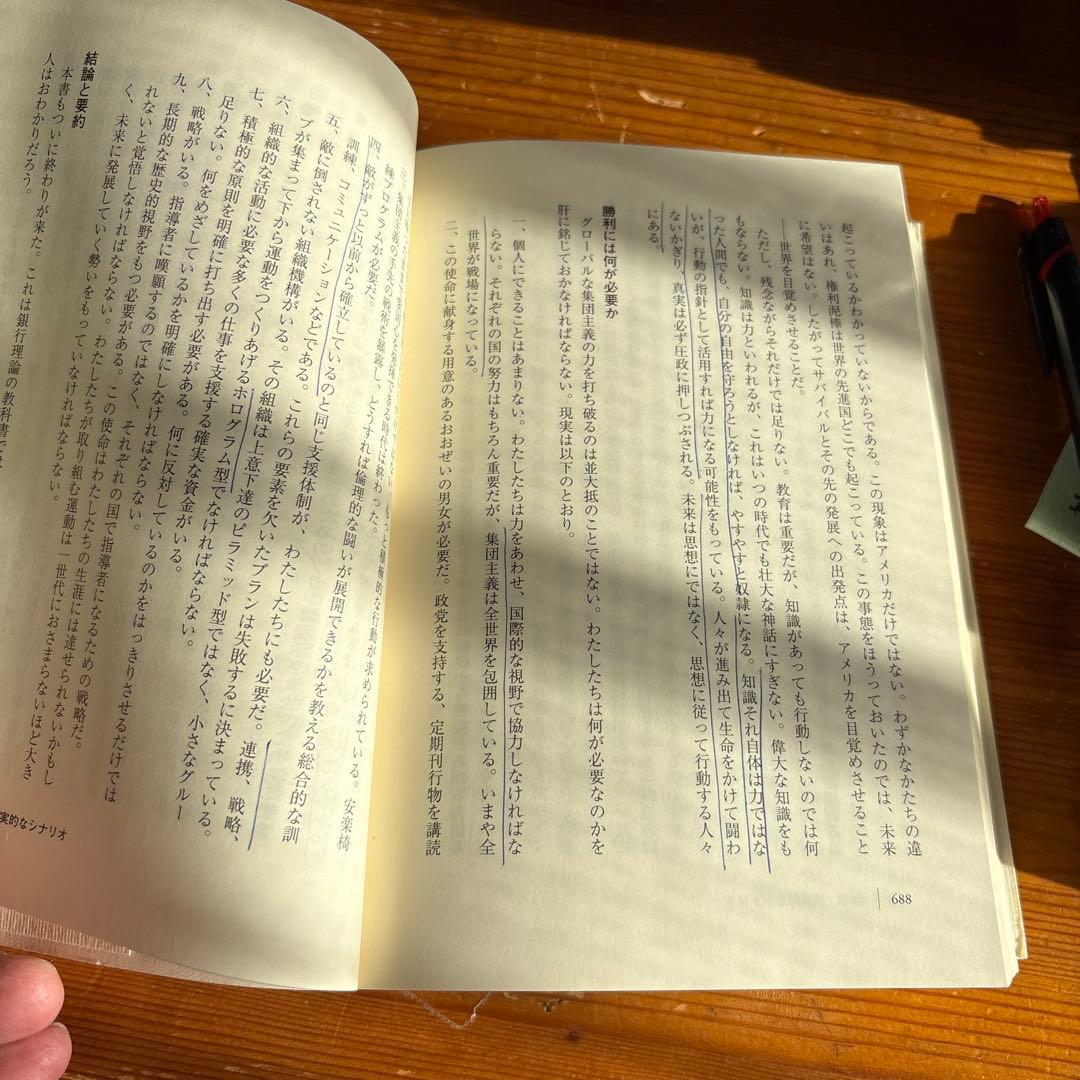 起こっているかわかっていないからである。この現象はアメリカだけではない。わずかなかたちの違
いはあれ、権利泥棒は世界の先進国どこでも起こっている。この事態をほうっておいたのでは、未来
に希望はない。したがってサバイバルとその先の発展への出発点は、アメリカを目覚めさせること
――世界を目覚めさせることだ。
ただし、残念ながらそれだけでは足りない。教育は重要だが、知識があっても行動しないのでは何
もならない。知識は力といわれるが、これはいつの時代でも壮大な神話にすぎない。偉大な知識をも
った人間でも、自分の自由を守ろうとしなければ、やすやすと奴隷になる。知識それ自体は力ではな
いが、行動の指針として活用すれば力になる可能性をもっている。人々が進み出て生命をかけて闘わ
ないかぎり、真実は必ず圧政に押しつぶされる。未来は思想にではなく、思想に従って行動する人々
にある。
勝利には何が必要か
グローバルな集団主義の力を打ち破るのは並大抵のことではない。わたしたちは何が必要なのかを
肝に銘じておかなければならない。現実は以下のとおり。
一、個人にできることはあまりない。わたしたちは力をあわせ、国際的な視野で協力しなければな
らない。それぞれの国の努力はもちろん重要だが、集団主義は全世界を包囲している。いまや全
世界が戦場になっている。
二、この使命に献身する用意のあるおおぜいの男女が必要だ。政党を支持する、定期刊行物を講読
688
できる時代は終わった。もっと積極的な行動が求められている。安楽椅
の戦術を暴露し、どうすれば倫理的な闘いが展開できるかを教える総合的な訓
練プログラムが必要だ。
四、敵がずっと以前から確立しているのと同じ支援体制が、わたしたちにも必要だ。連携、戦略、
訓練、コミュニケーションなどである。これらの要素を欠いたプランは失敗するに決まっている。
五、敵に倒されない組織機構がいる。その組織は上意下達のピラミッド型ではなく、小さなグルー
プが集まって下から運動をつくりあげるホログラム型でなければならない。
六、組織的な活動に必要な多くの仕事を支援する確実な資金がいる。
七、積極的な原則を明確に打ち出す必要がある。何に反対しているのかをはっきりさせるだけでは
足りない。何をめざしているかを明確にしなければならない。
八、戦略がいる。指導者に嘆願するのではなく、それぞれの国で指導者になるための戦略だ。
九、長期的な歴史的視野をもつ必要がある。この使命はわたしたちの生涯には達せられないかもし
れないと覚悟しなければならない。わたしたちが取り組む運動は一世代におさまらないほど大き
く、未来に発展していく勢いをもっていなければならない。
結論と要約
本書もついに終わりが来た。これは銀行理論の教科書
人はおわかりだろう。
実的なシナリオ